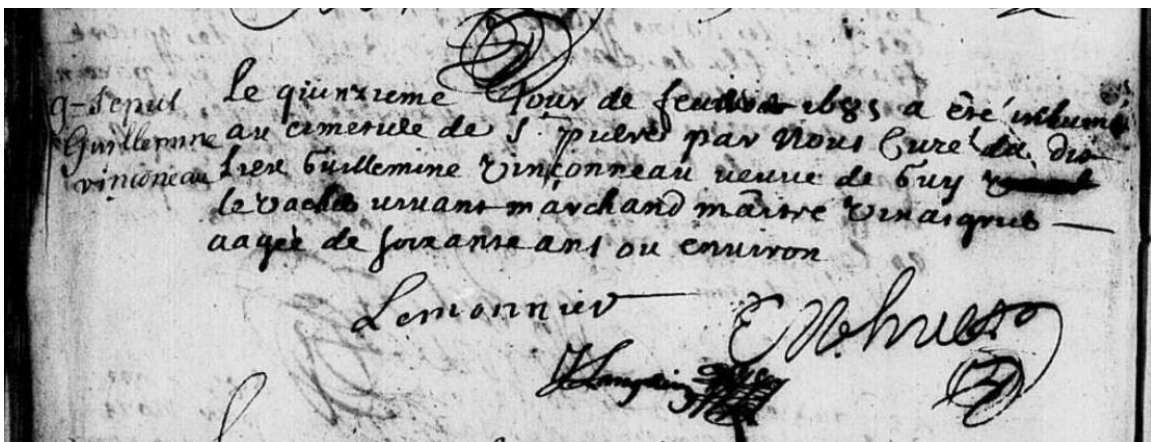 9-sepul
Guillemine
vinconeau
Le quinzieme Jour de feuvrier 1685 a été inhumé
au cimetiere de St. pierre par Nous Curé du dit
lieu Guillemine Vinçonneau veuve de Guy
levacher vivant marchand maitre vinaigrier
aagée de soixante ans ou environ
Lemonnier